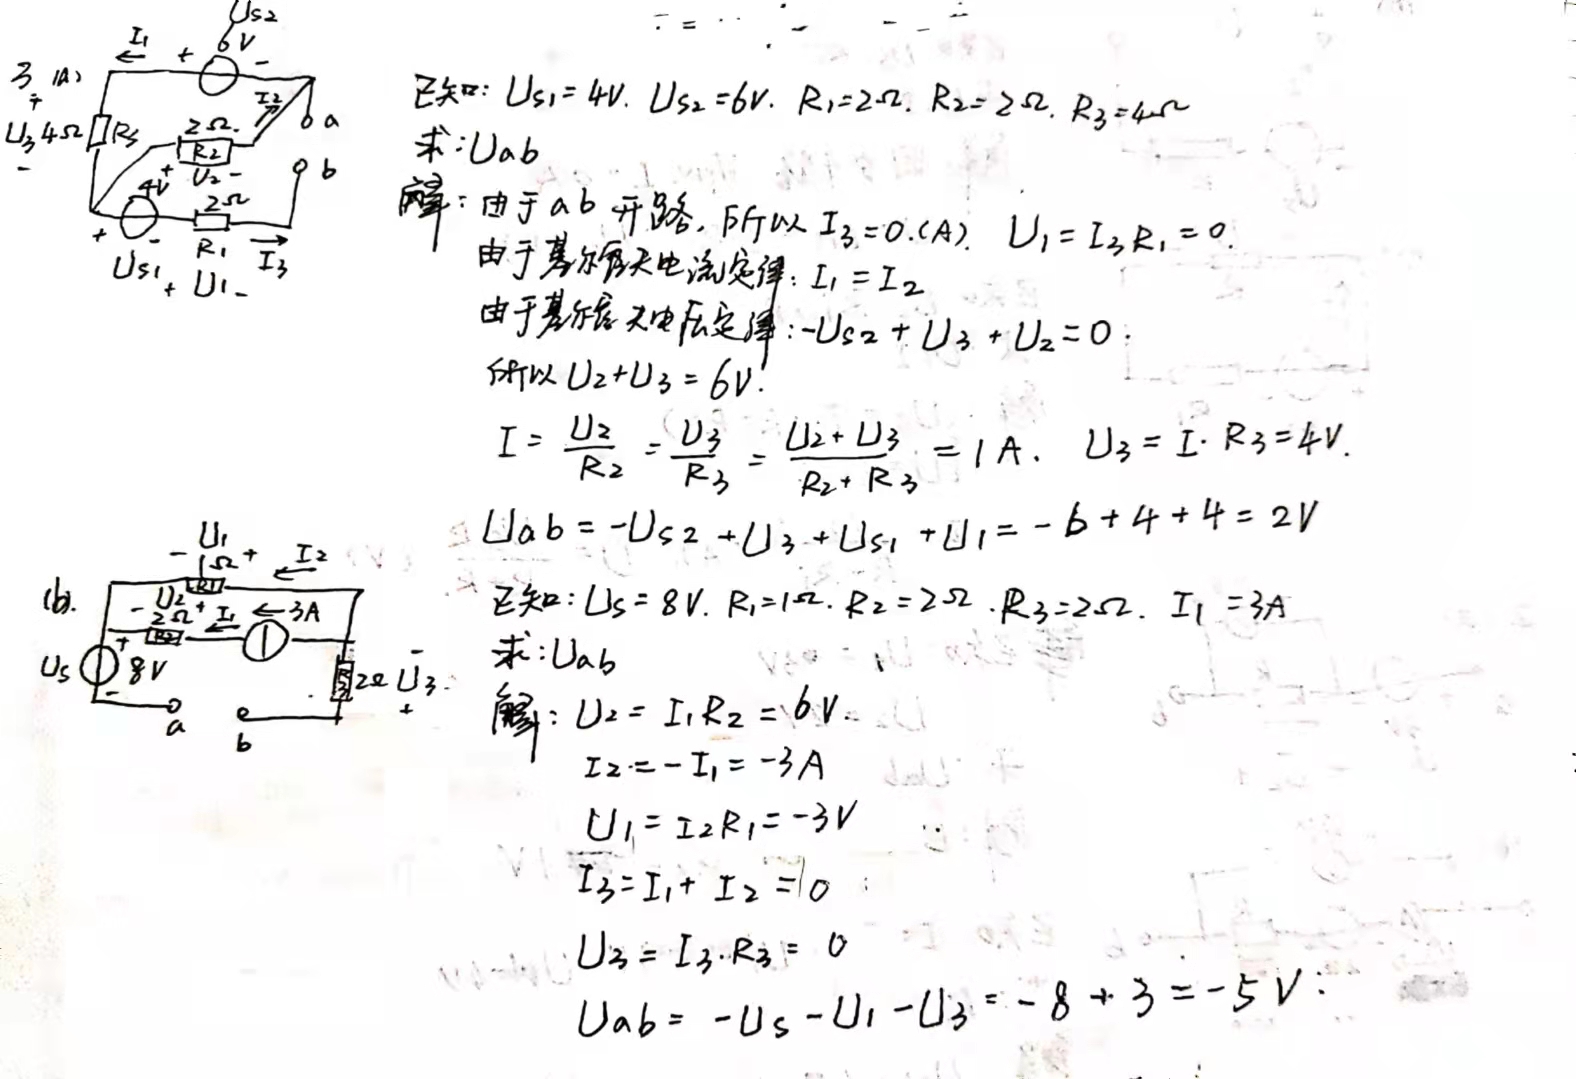 Us2
6V
I1
+ -
3 (A)
+
U3 4Ω R3
-
I2
2Ω
R2
+ U2 -
a
b
4V
2Ω
+ -
R1
I3
Us1
+ U1 -
已知: Us1 = 4V. Us2 = 6V. R1 = 2Ω. R2 = 2Ω. R3 = 4Ω
求: Uab
解: 由于ab开路, 所以 I3 = 0.(A). U1 = I3R1 = 0.
由于基尔霍夫电流定律: I1 = I2
由于基尔霍夫电压定律: -Us2 + U3 + U2 = 0.
所以 U2+U3 = 6V.
I = U2/R2 = U3/R3 = (U2+U3)/(R2+R3) = 1A. U3 = I·R3 = 4V.
Uab = -Us2 + U3 + Us1 + U1 = -6 + 4 + 4 = 2V
(b).
U1
- 1Ω +
I2
R1
- U2 +
2Ω
I1
3A
R2
Us
+
8V
-
a
b
R3
2Ω
-
U3
+
已知: Us = 8V. R1 = 1Ω. R2 = 2Ω. R3 = 2Ω. I1 = 3A
求: Uab
解: U2 = I1R2 = 6V.
I2 = -I1 = -3A
U1 = I2R1 = -3V
I3 = I1 + I2 = 0
U3 = I3·R3 = 0
Uab = -Us - U1 - U3 = -8 + 3 = -5V